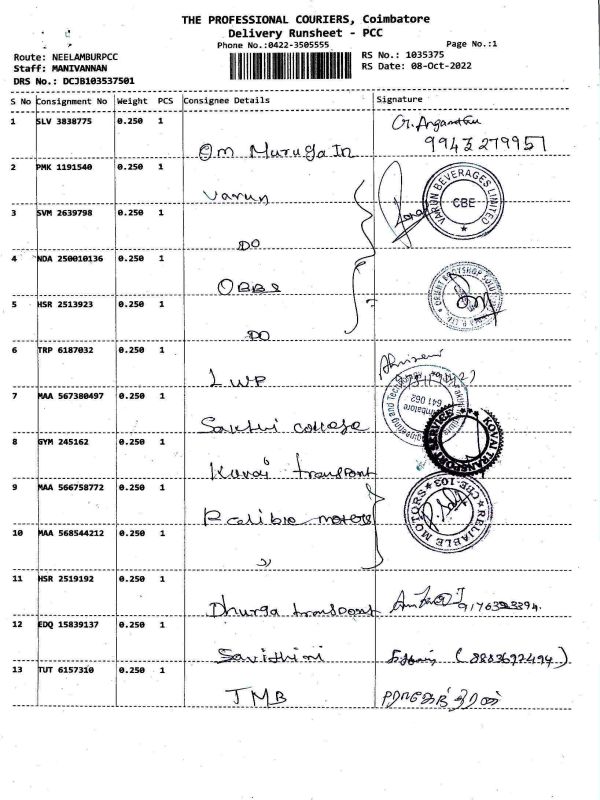 THE PROFESSIONAL COURIERS, Coimbatore
Delivery Runsheet - PCC
Phone No.:0422-3505555 Page No.:1
Route: NEELAMBURPCC RS No.: 1035375
Staff: MANIVANNAN RS Date: 08-Oct-2022
DRS No.: DCJB103537501
S No Consignment No Weight PCS Consignee Details Signature
1 SLV 3838775 0.250 1
Om Muruga In
2 PMK 1191540 0.250 1
Varun VARUN BEVERAGES LIMITED CBE
3 SVM 2639798 0.250 1
DO
4 NDA 250010136 0.250 1
OBBS
5 HSR 2513923 0.250 1
DO
6 TRP 6187032 0.250 1
LWP
7 MAA 567380497 0.250 1
641 062
Sakthi college
8 GYM 245162 0.250 1 KOVAI TRANSPORT SERVICE
Kovai transport
9 MAA 566758772 0.250 1
Relible motors RELIABLE MOTORS CBE-103
10 MAA 568544212 0.250 1
11 HSR 2519192 0.250 1
Dhurga transport
12 EDQ 15839137 0.250 1
Savithiri (8883692494)
13 TUT 6157310 0.250 1
TMB